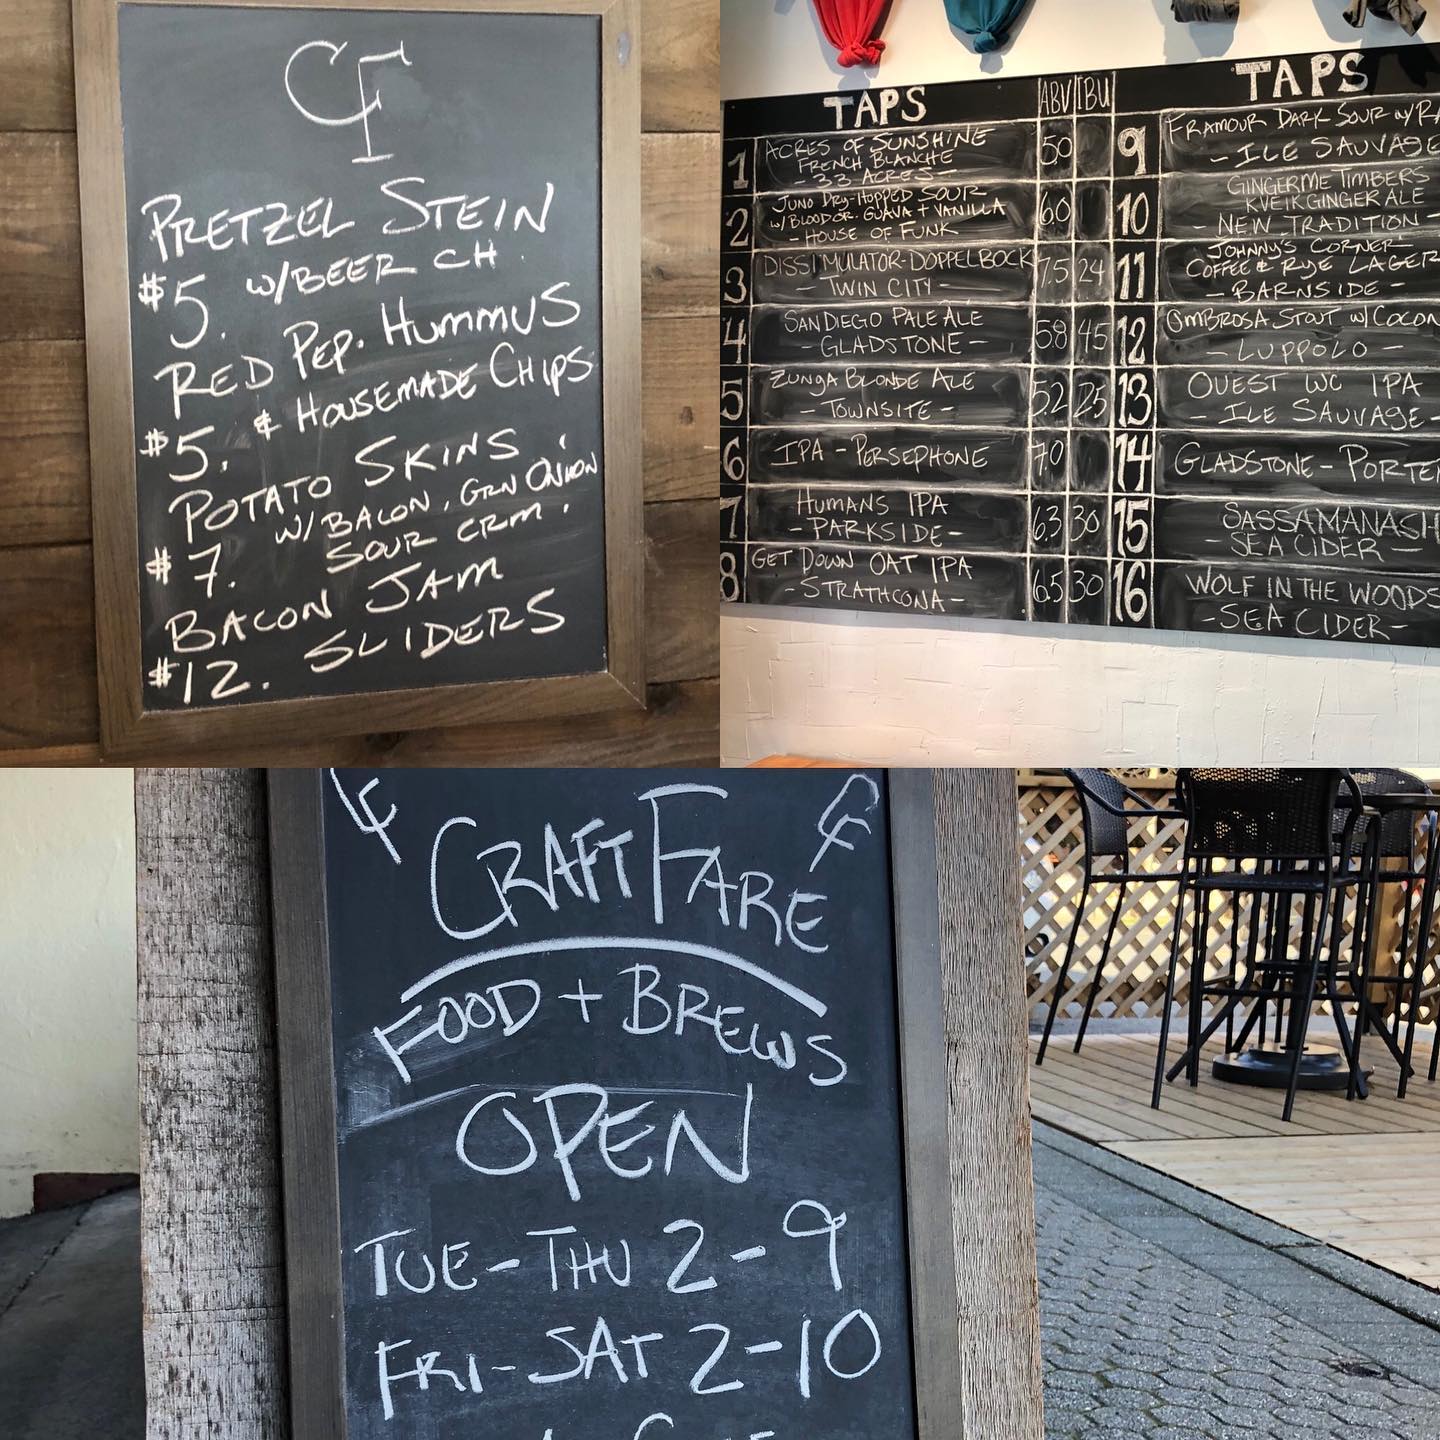 CF
PRETZEL STEIN
$5. W/BEER CH.
RED PEP. HUMMUS
$5. & HOUSEMADE CHIPS
POTATO SKINS
W/BACON, GRN ONION
$7. SOUR CRM.
BACON JAM
$12. SLIDERS
TAPS ABV IBU
1 ACRES OF SUNSHINE
FRENCH BLANCHE
- 33 ACRES - 50
2 JUNO DRY-HOPPED SOUR
W/BLOOD OR. GUAVA + VANILLA
- HOUSE OF FUNK 60
3 DISSIMULATOR-DOPPELBOCK
- TWIN CITY - 7.5 24
4 SAN DIEGO PALE ALE
- GLADSTONE - 58 45
5 ZUNGA BLONDE ALE
- TOWNSITE - 52 25
6 IPA - PERSEPHONE 70
7 HUMANS IPA
- PARKSIDE - 63 30
8 GET DOWN OAT IPA
- STRATHCONA - 65 30
TAPS
9 FRAMOUR DARK SOUR W/RA
- ILE SAUVAGE
10 GINGER ME TIMBERS
KVEIK GINGER ALE
NEW TRADITION -
11 JOHNNY'S CORNER
COFFEE & RYE LAGER
- BARNSIDE -
12 OMBROSA STOUT W/COCON
- LUPPOLO -
13 OUEST WC IPA
- ILE SAUVAGE -
14 GLADSTONE - PORTE
15 SASSAMANASH
- SEA CIDER -
16 WOLF IN THE WOODS
- SEA CIDER -
CF CF
CRAFT FARE
FOOD + BREWS
OPEN
TUE - THU 2 - 9
FRI - SAT 2 - 10